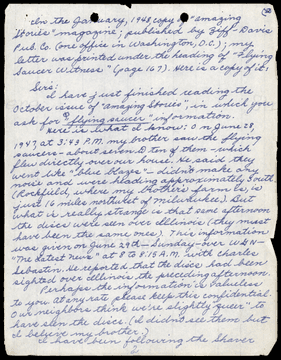 In the January, 1948, copy of "Amazing
Stories" magazine; published by Ziff-Davis
Pub. Co. (one office in Washington, D.C.); my
letter was printed under the heading of "Flying
Saucer Witness" (page 167). Here is a copy of it:
Sirs:
I have just finished reading the
October issue of "Amazing Stories", in which you
ask for "flying saucer" information.
Here is what I know: On June 28,
1947, at 3:43 P.M. my brother saw the flying
saucers - about seven - ten of them - which
flew directly over our house. He said they
went like "blue blazes" - didn't make any
noise and were heading approximately South
(Rockfield, where my brother's farm is, is
just 16 miles northwest of Milwaukee.) But
what is really strange is that same afternoon
the discs were seen over Illinois (they must
have been the same ones). This information
was given on June 29th - Sunday - over WGN -
"The Latest News" at 8 to 8:15 A.M. with Charles
Sebastin. He reported that the discs had been
sighted over Illinois the preceding afternoon.
Perhaps the information is valueless
to you, at any rate please keep this confidential.
Our neighbors think we're slightly "queer" to
have seen the discs. (I didn't see them but
I believe my brother.)
I have been following the Shaver